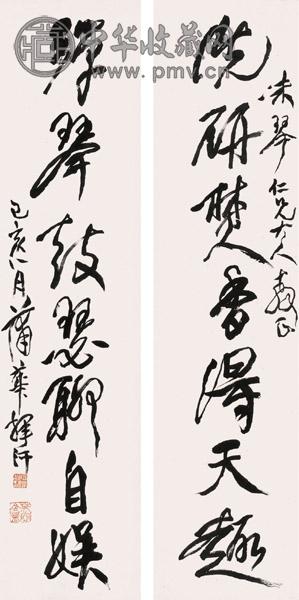 中华收藏网
www.pmv.cn
味琴仁兄大人教正
洗研焚香得天趣
彈琴鼓瑟聊自娛
己亥八月蒲華揮汗